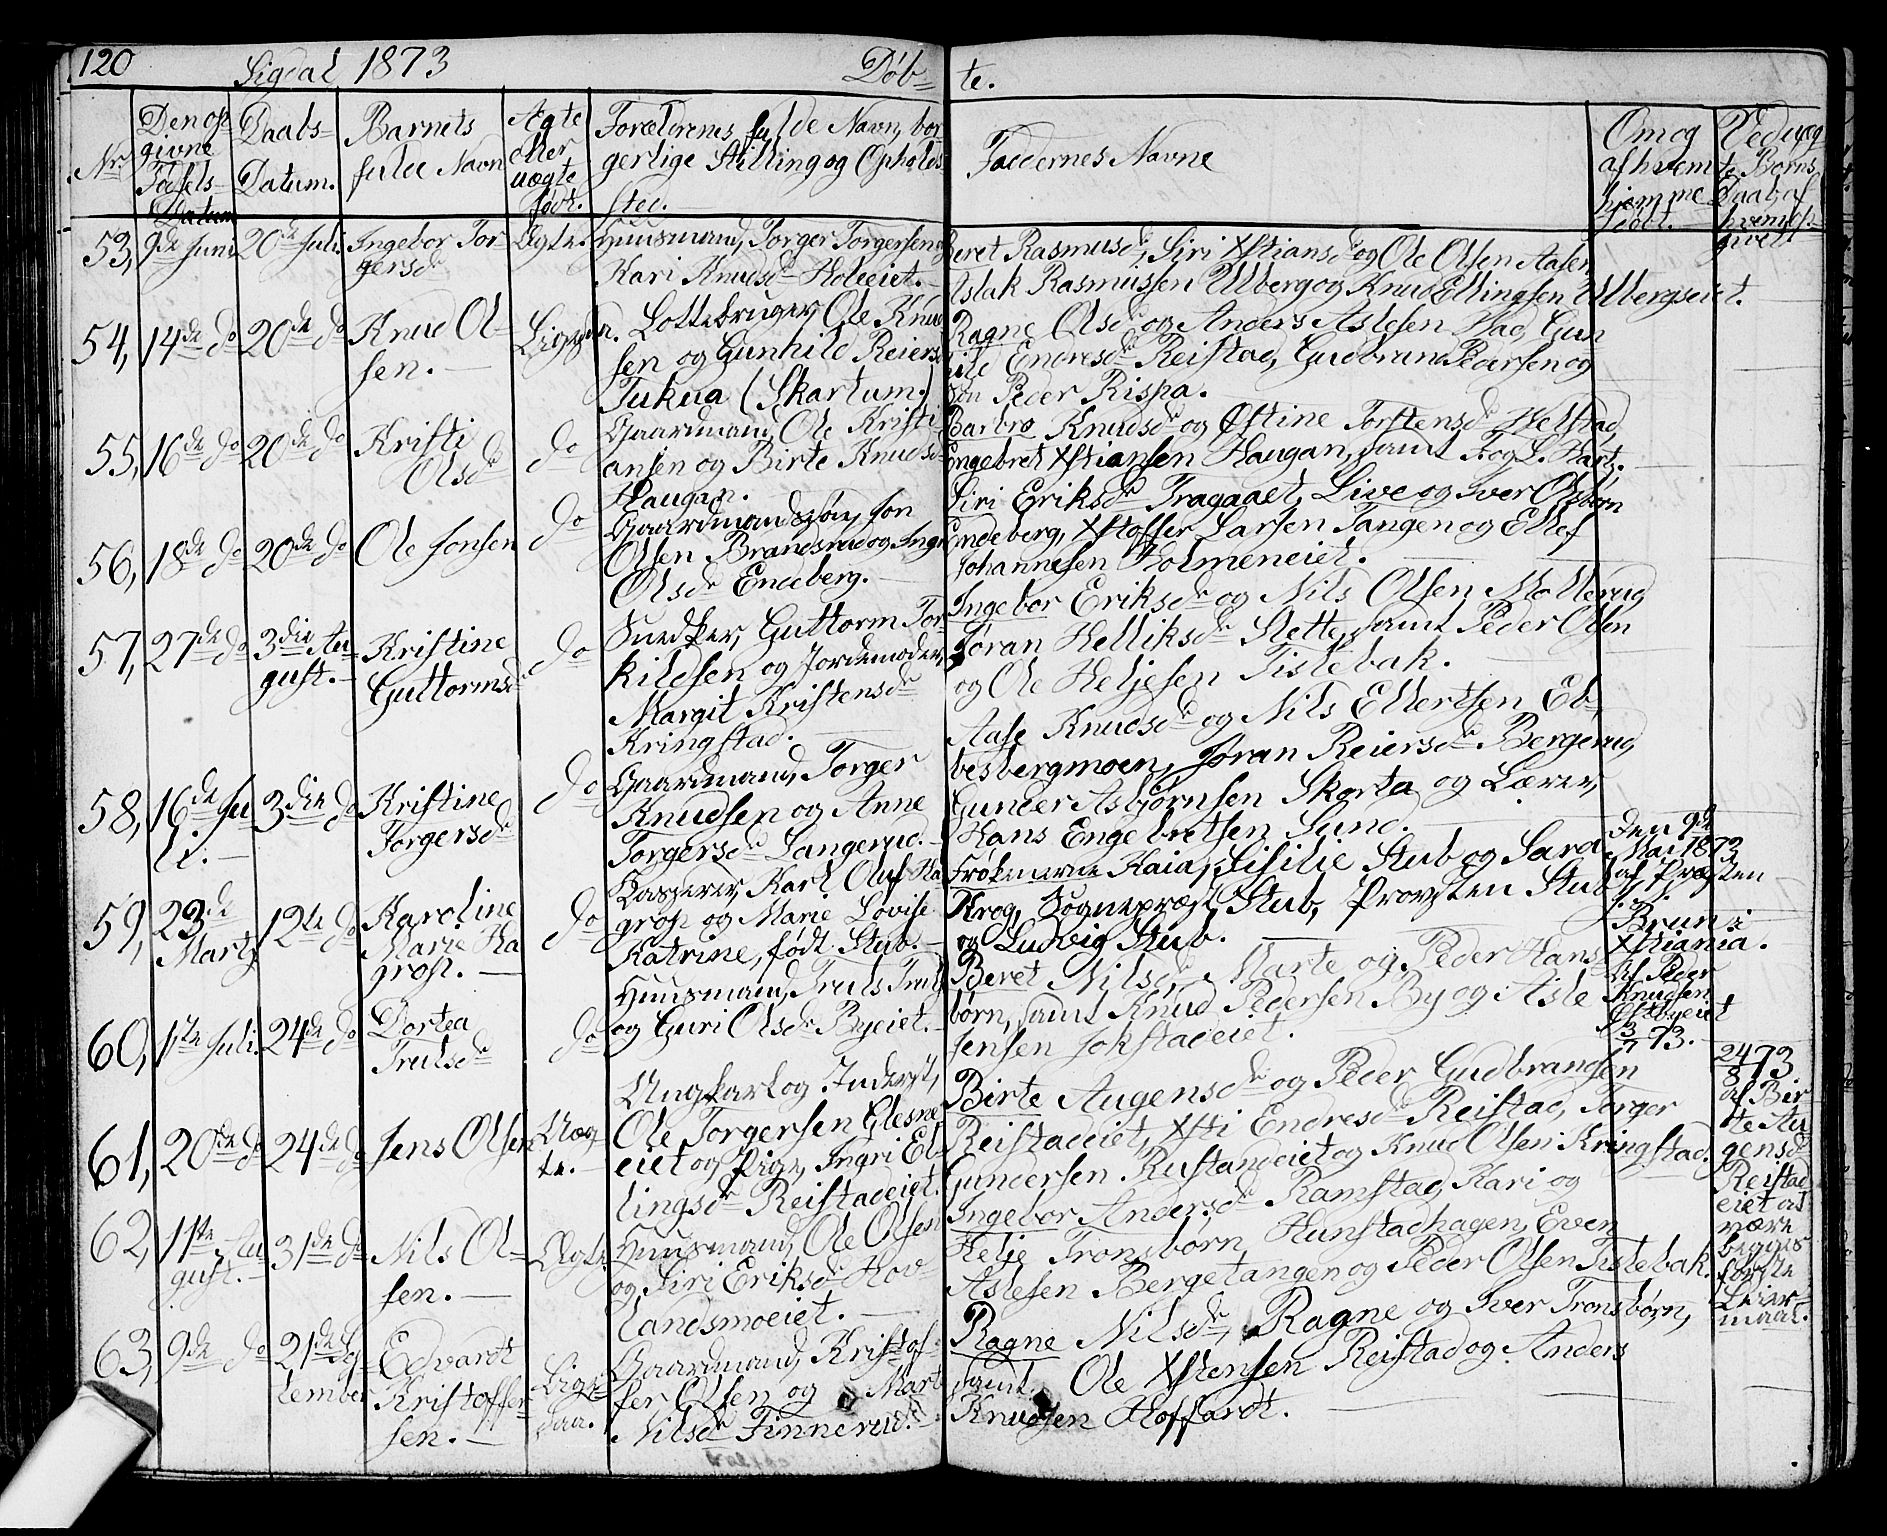 120 Sigdal 1873 Døb- te.
Nr.
Den op-
givne
Føsels-
Datum
Daabs-
Datum.
Barnets
fulde Navn
Ægte
eller
uægte
født.
Forældrenes fulde Navn, bor
gerlige Stilling og Opholds
sted.
Faddernes Navne
Om og
af hvem
hjemme
døbt.
Ved uæg
te Børns
Daab, af
hvem op-
givet
53, 9de Juni 20de Juli. Ingebor Tor
gersdr
Ægte.
Huusmand, Torger Torgersen og
Kari Knudsdr Holeeiet.
Beret Rasmusdr, Siri Xstiansdr og Ole Olsen Aasen
Aslak Rasmussen Ulberg og Knud Ellingsen Ulbergseiet.
54, 14de do 20de do Knud Ol-
sen.
Ligedan.
Lottebruger, Ole Knud
sen og Gunhild Reiersdr
Tukua (Skartum.)
Ragne Olsdr og Anders Aslesen Had, Gun
hild Endresdr Reistad, Gudbrand Pedersen og
Søn Peder Rispa.
55, 16de do 20de do Kristi
Olsdr
do
Gaardmand, Ole Kristi
ansen og Birte Knudsdr
Haugan.
Barbro Knudsdr og Østine Torstensdr Helstad,
Engebret Xstiansen Haugan, samt T. og L. Hart.
56, 18de do 20de do Ole Jonsen
do
Gaardmandssøn, Jon
Olsen Brandsrud og Ingri
Olsdr Endeberg.
Siri Eriksdr Tragaaet, Live og Iver Olsbørn
Endeberg, Xstoffer Larsen Tangen og Ellef
Johannesen Holmeneiet.
57, 27de do 3die Au-
gust.
Kristine
Guttormsdr
do
Snedker, Guttorm Tor-
kildsen og Jordemoder,
Margit Kristensdr
Kringstad.
Ingebor Eriksdr og Nils Olsen Mollerud,
Jøran Helliksdr Slette, samt Peder Olsen
og Ole Heljesen Tislebak.
58, 16de Ju
li.
3die do Kristine
Torgersdr
do
Gaardmand, Torger
Knudsen og Anne
Torgersdr Langerud.
Aase Knudsdr og Nils Ellertsen Eb
besbergmoen, Jøran Reiersdr Bergerud,
Gunder Asbjørnsen Skorta og Lærer,
Hans Engebretsen Sund.
59, 23de
Marts
12te do Karoline
Marie Ha
grop.
do
Kasserer, Karl Oluf Ha
grop og Marie Lovise
Katrine, født Stub.
Frøknerne Kaia, Sisilie Stub og Sara
Krog, Sognepræst, Stub, Provsten Stub
og Ludvig Stub.
Den 9de
Mai 1873
af Præsten
Brun i
Xstiania.
60, 1ste Juli. 24de do Dortea
Trulsdr
do
Huusmand, Truls Truls
og Guri Olsdr Byeiet.
Beret Nilsdr, Marte og Peder Hans-
børn, samt Knud Pedersen By og Asle
Jensen Jokstadeiet.
Af Peder
Knudsen
Østbyeiet
3/7 73.
61, 20de do 24de do Jens Olsen
Uæg
te.
Ungkarl og Inderst,
Ole Torgersen Glesne
eiet og Pige, Ingri El-
lingsdr Reistadeiet.
Birte Augensdr og Peder Gudbrandsen
Reistadeiet, Xsti Endresdr Reistad, Torger
Gundersen Rustandeiet og Knud Olsen Kringstad.
24/8 73
af Bir
te Au
gensdr
Reistad
eiet at
være
begges
første
Leier-
maal.
62, 11te Au
gust.
31de do Nils Ol-
sen.
Ægte.
Huusmand, Ole Olsen
og Siri Eriksdr Hov
landsmoeiet.
Ingebor Andersdr Ramstad, Kari og
Helje Tronsbørn Hunstadhagen, Even
Aslesen Bergetangen og Peder Olsen Tislebak.
63, 9de do 21de Sep
tember
Edvardt
Kristoffer-
sen.
Lige-
saa.
Gaardmand, Kristof-
fer Olsen og Mart
Nilsdr Finnerud.
Ragne Nilsdr, Ragne og Iver Tronsbørn,
samt Ole Xstensen Reistad og Anders
Knudsen Hoffardt.